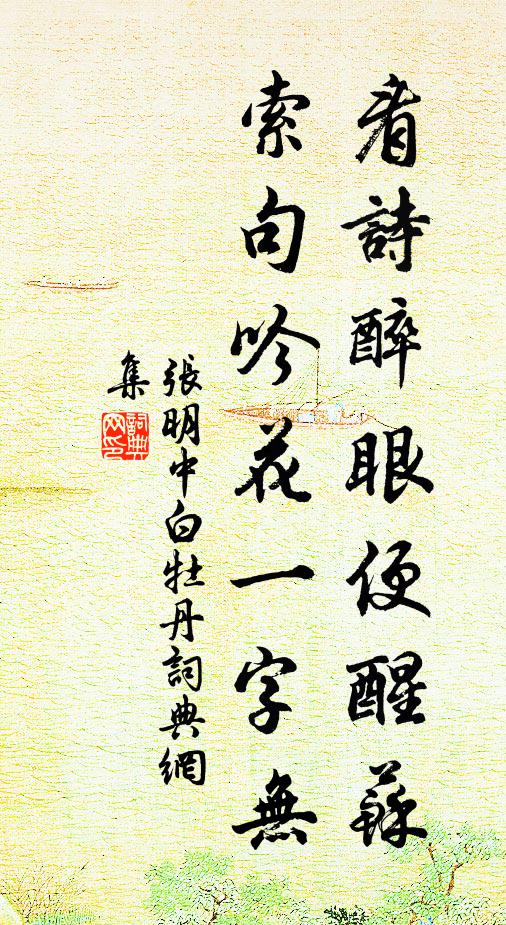 看詩醉眼便醒蘇
索句吟花一字無
張明中白牡丹詞典網
集
詞典網印